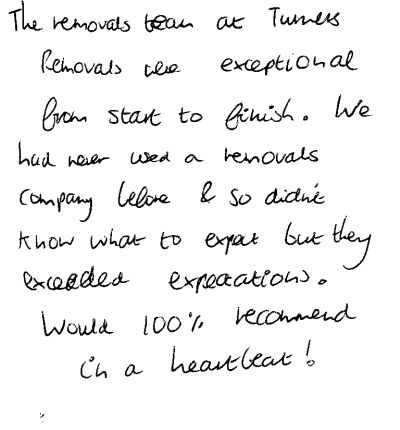 The removals team at Turners
Removals were exceptional
from start to finish. We
had never used a removals
company before & so didn't
know what to expect but they
exceeded expectations.
Would 100% recommend
in a heartbeat!